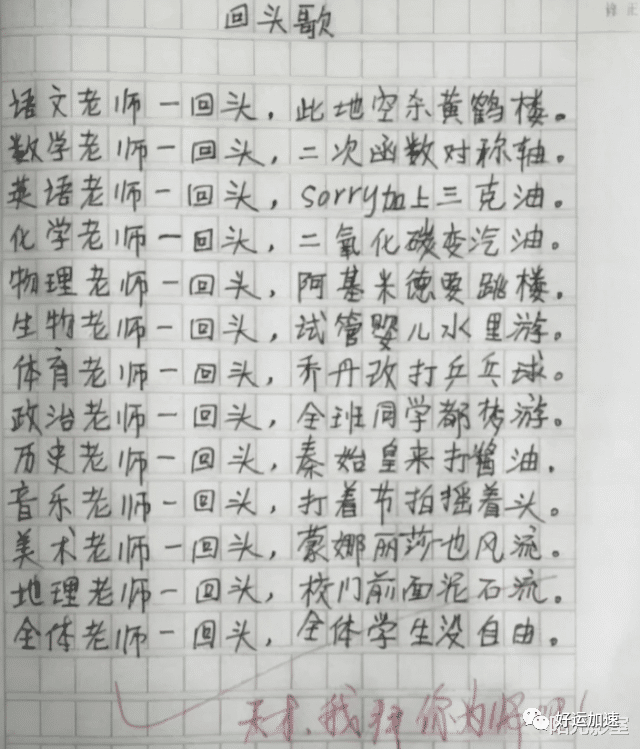 修正
回头歌
语文老师一回头，此地空余黄鹤楼。
数学老师一回头，二次函数对称轴。
英语老师一回头，sorry加上三克油。
化学老师一回头，二氧化碳变汽油。
物理老师一回头，阿基米德要跳楼。
生物老师一回头，试管婴儿水里游。
体育老师一回头，乔丹改打乒乓球。
政治老师一回头，全班同学都梦游。
历史老师一回头，秦始皇来打酱油．
音乐老师一回头，打着节拍摇着头。
美术老师一回头，蒙娜丽莎也风流。
地理老师一回头，校门前面泥石流．
全体老师一回头，全体学生没自由．
天才，我拜你为师吧！
好运加速